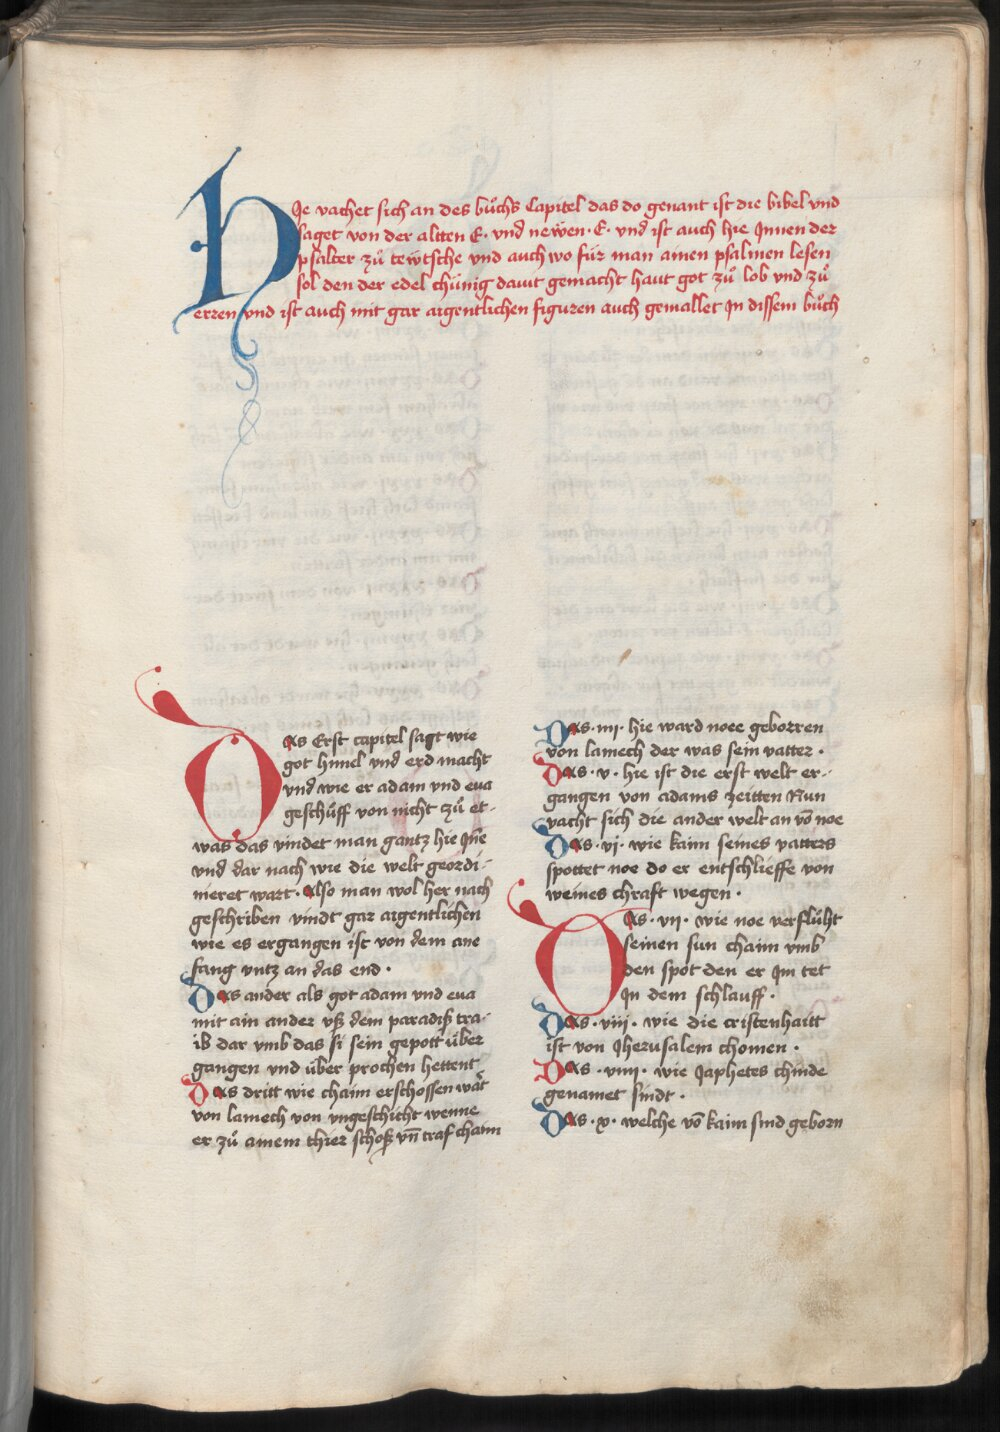 HJe vachet sich an des bůchs Capitel das do genant ist die bibel vnd
saget von der altten E · vnd newen · E · vnd ist auch hie Jnnen der
psalter zů tewtsche vnd auch wo für man ainen psalmen lesen
sol den der edel chünig dauit gemacht haut got zů lob vnd zů
erren vnd ist auch mit gar aigentlichen figuren auch gemallet Jn dissem bůch
DAs Erst capitel sagt wie
got himel vnd erd macht
vnd wie er adam vnd eua
geschůff von nicht zů et-
was das vindet man gantz hie Jn̄e
vnd dar nach wie die welt geordi-
nieret wart · Also man wol her nach
geschriben vindt gar aigentlichen
wie es ergangen ist von dem ane
fang vntz an das end ·
DAs ander als got adam vnd eua
mit ain ander vß dem paradiß tra-
ib dar vmb das si sein gepott über
gangen vnd über prochen hettent
DAs dritt wie chaim erschossen wär
von lamech von vngeschicht wenne
er zů ainem thier schoß vn̄ traf chaim
DAs · iiii · hie ward noee geborren
von lamech der was sein vatter ·
DAs · v · hie ist die erst welt er-
gangen von adams zeitten Nun
vacht sich die ander welt an vō noe
DAs · vi · wie kaim seines vatters
spottet noe do er entschlieffe von
weines chraft wegen ·
DAs · vii · wie noe verflůht
seinen sun chaim vmb
den spot den er Jm tet
Jn dem schlauff ·
DAs · viii · wie die cristenhaitt
ist von Jherusalem chomen ·
DAs · viiii · wie Japhetes chinde
genamet sindt ·
DAs · x · welche vō kaim sind geborn